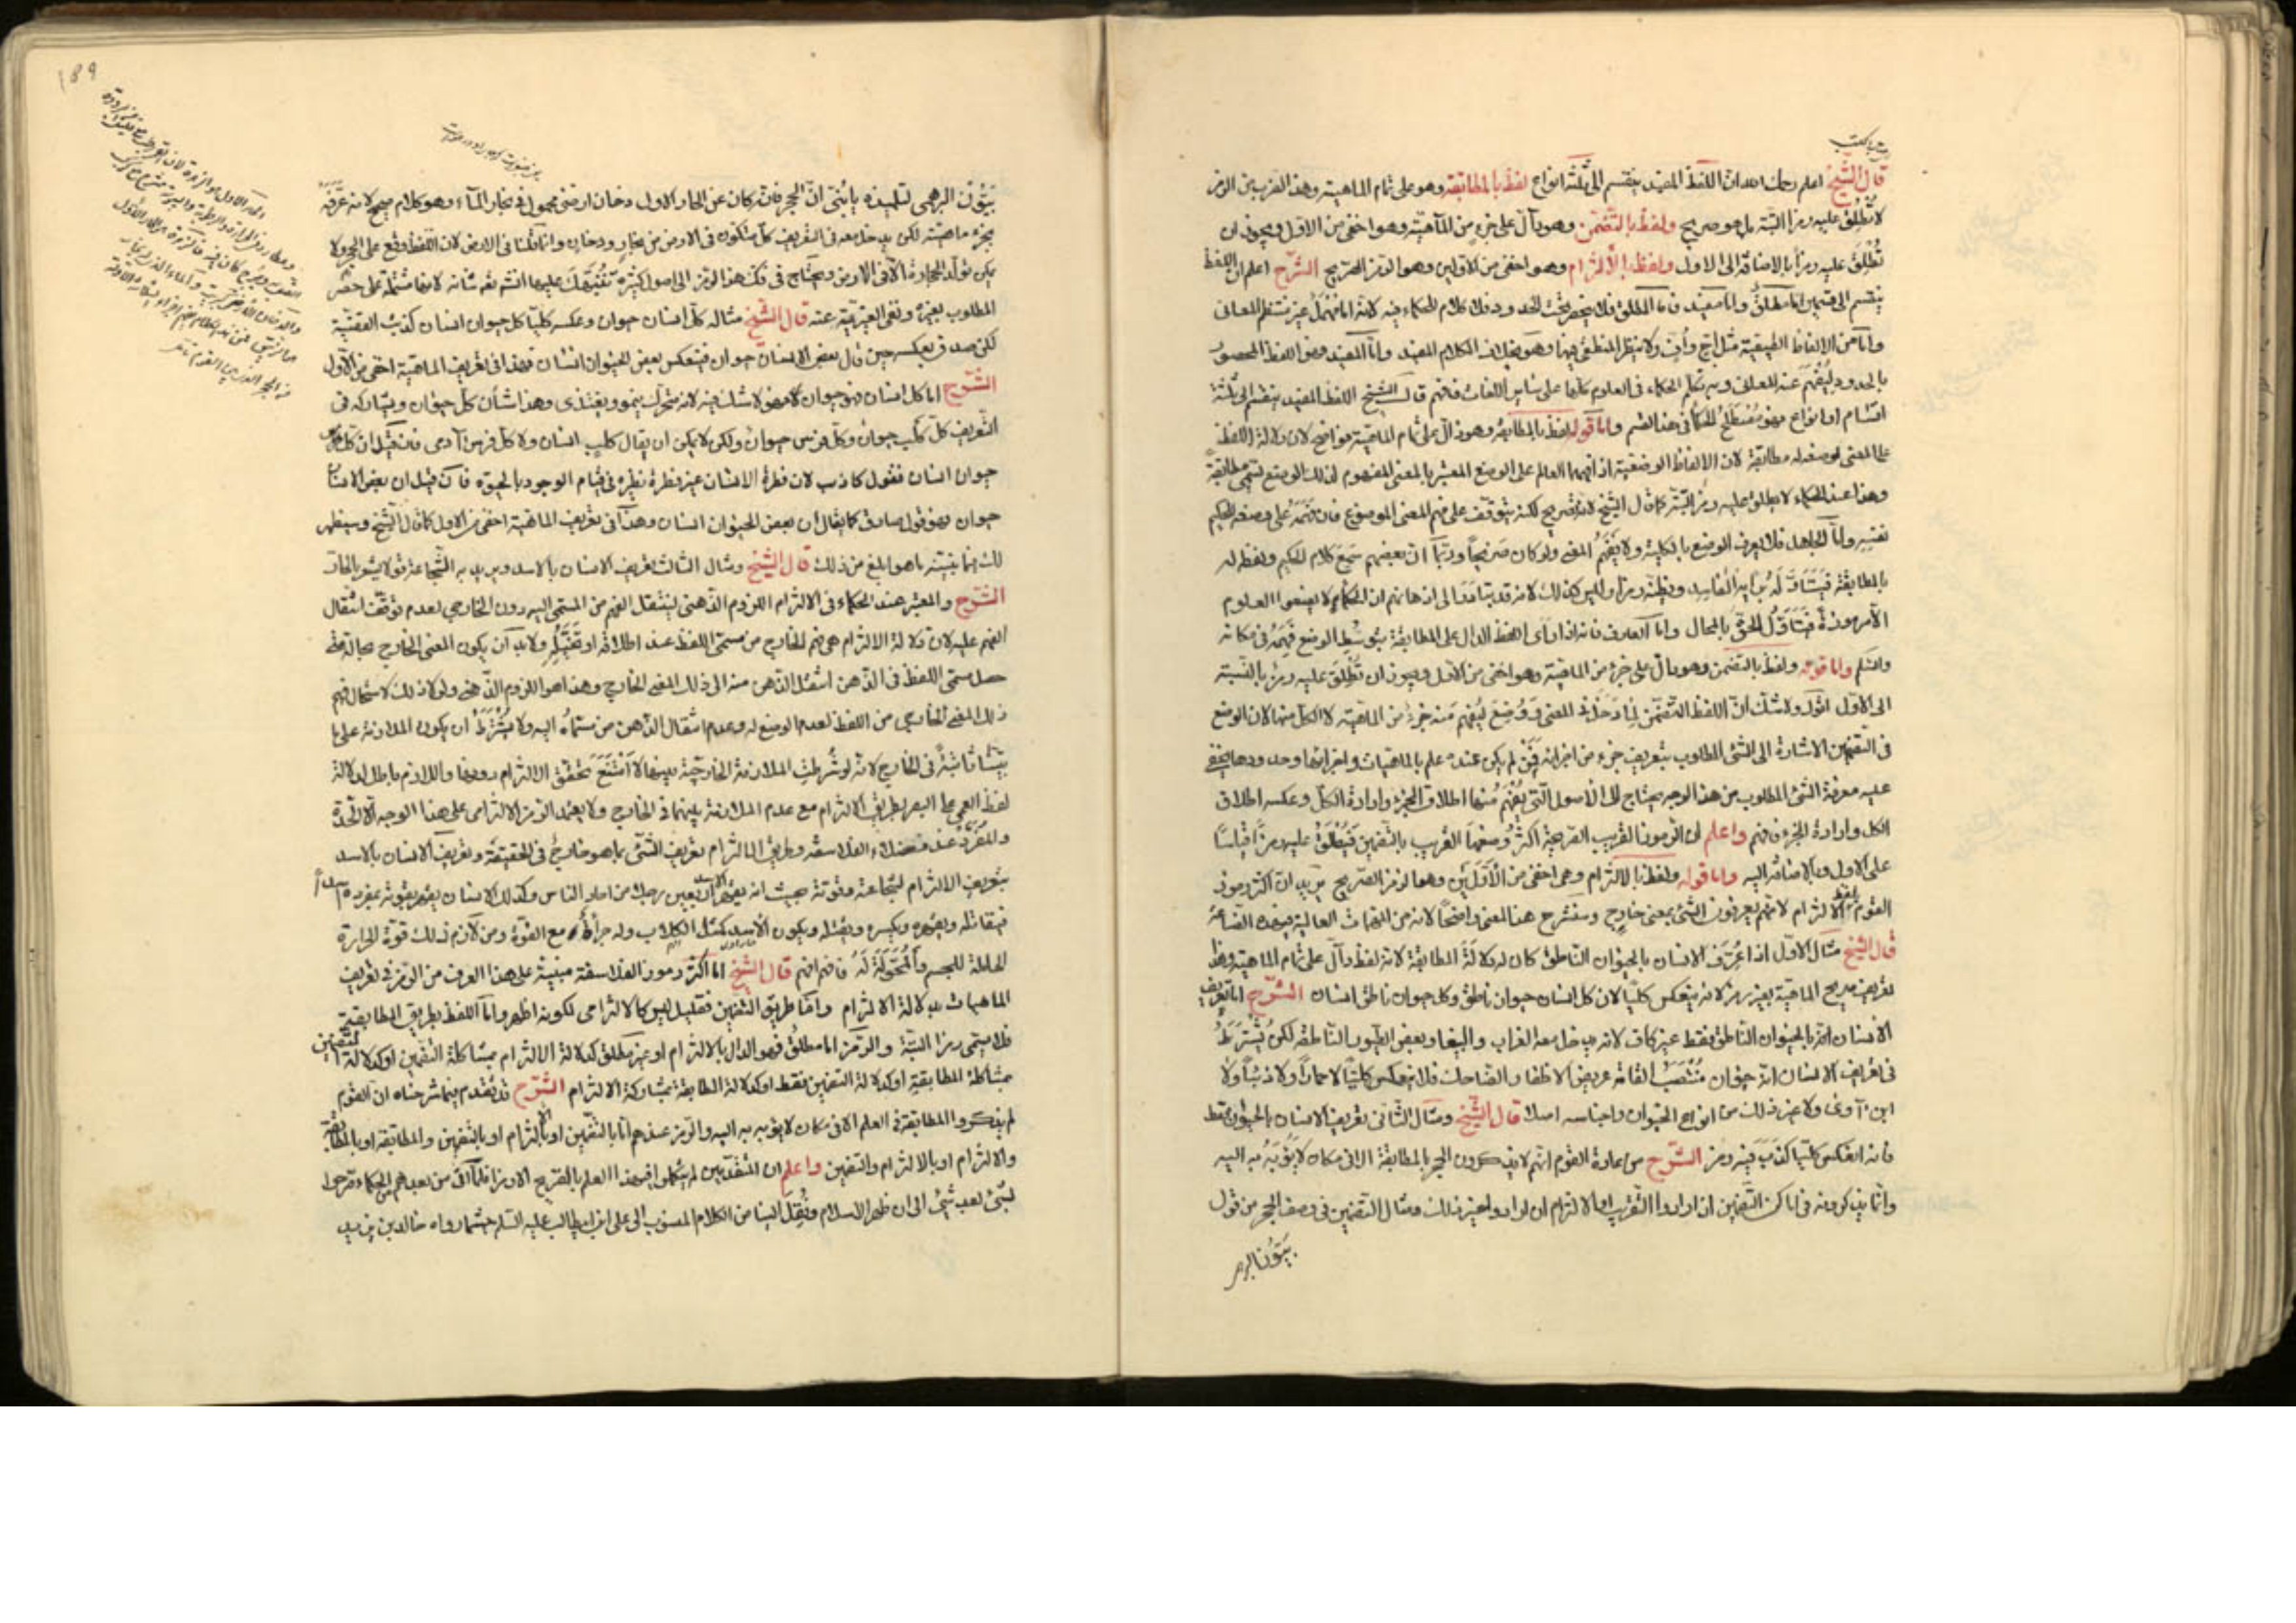 قال الشيخ اعلم رحمك الله ان اللفظ المفيد ينقسم الى ثلثة انواع لفظ بالمطابقة وهو على تمام الماهية وهذا الضرب من الرمز
لا تطلق عليه رمزا البتة بل هو صريح ولفظ بالتضمن وهو دال على جزء من الماهية وهو اخفى من الاول ويجوز ان
تطلق عليه رمزا بالاضافة الى الاول ولفظ بالالتزام وهو اخفى من الاولين وهو الرمز الصريح الشرح اعلم ان اللفظ
ينقسم الى قسمين اما مطلق واما مفيد فاما المطلق فلا ينحصر تحت الحدود ولا كلام للحكماء فيه لانه اما مهمل غير منتظم المعانى
واما من الالفاظ الطبيعية مثل اح وأف ولا ينظر المنطقى فيها وهو بخلاف الكلام المفيد واما المفيد فهو اللفظ المحصور
بالحدود ليفهم عنه المعانى وبه تكلم الحكماء فى العلوم كلها على سائر اللغات فافهم قال الشيخ اللفظ المفيد ينقسم الى ثلثة
اقسام او انواع فهو مصطلح الحكماء فى هذا القسم واما قوله لفظ بالمطابقة وهو دال على تمام الماهية فواضح لان دلالة اللفظ
على المعنى لوضعه له مطابقة لان الالفاظ الوضعية اذا فهمها العالم على الوضع المعتبر بالمعنى المفهوم لذلك الوضع تسمى مطابقة
وهذا عند الحكماء لا يطلق عليه رمز البتة كما قال الشيخ لانه صريح لكنه يتوقف على فهم المعنى الموضوع فان فهمه على وضعه الحكيم
نفسه واما الجاهل فلا يعرف الوضع بالكلية ولا يفهم المعنى ولو كان صريحا وربما ان بعضهم سمع كلام الحكيم ولفظه له
بالمطابقة فيتأول له برأيه الفاسد ويظنه رمزا وليس كذلك لانه قد يتبادر الى اذهانهم ان الحكماء لا يضعوا العلوم
الا مرموزة فيتأول الحق بالمحال واما العارف فانه اذا رأى اللفظ الدال على المطابقة بتوسط الوضع فهمه فى مكانه
واما قوله ولفظ بالتضمن وهو دال على جزء من الماهية وهو اخفى من الاول ويجوز ان تطلق عليه رمزا بالنسبة
الى الاول اقول ولا شك ان اللفظ التضمن لما دخل فى المعنى ووضع ليفهم منه جزء من الماهية لا الكل منها لان الوضع
فى التضمن الاشارة الى الشئ المطلوب بتعريف جزء من اجزائه فمن لم يكن عنده علم بالماهيات واجزائها وحدودها يخفى
عليه معرفة الشئ المطلوب من هذا الوجه يحتاج الى الاصول التى يفهم منها اطلاق الجزء وارادة الكل وعكسه اطلاق
الكل وارادة الجزء فافهم واعلم ان الرموز القريب الصريحة اكثر وضعها القريب بالتضمن فيطلق عليه رمزا قياسا
على الاول وبالاضافة اليه واما قوله ولفظ بالالتزام وهى اخفى من الاولين وهو الرمز الصريح يريد ان اكثر رموز
القوم بلفظ الالتزام لانهم يعرفون الشئ بمعنى خارج وسنشرح هذا المعنى واضحا لانه من المهمات العالية فى هذه الصناعة
قال الشيخ مثال الاول اذا عرف الانسان بالحيوان الناطق كان له دلالة المطابقة لانه لفظ دال على تمام الماهية وهذا
تعريف صريح الماهية بغير رمز لانه ينعكس كليا لان كل انسان حيوان ناطق وكل حيوان ناطق انسان الشرح اما تعريف
الانسان انه بالحيوان الناطق فقط غير كاف لانه يدخل معه الغراب والببغاء وبعض الطيور الناطقة لكن يشترط
فى تعريف الانسان انه حيوان منتصب القامة عريض الاظفار الضاحك فلا ينعكس كليا لا حمارا ولا ذئبا ولا
ابن آوى ولا غير ذلك من انواع الحيوان واجناسه اصلا قال الشيخ ومثال الثانى تعريف الانسان بالحيوان فقط
فانه انعكس كليا كذب فيه رمز الشرح من عادة القوم انهم لا يذكرون الحجر بالمطابقة الا فى مكان لا يؤبه به اليه
وانما يذكرونه فى اماكن التضمن ان ارادوا التقريب او الالتزام ان ارادوا غير ذلك ومثال التضمن فى وصف الحجر من قول
بيتون البر
189
بيتون البرهمى لتلميذه يا بنى ان الحجر فانه كان عن الحار الاول دخان ارضى محمول فى بخار الماء وهو كلام صحيح لانه عرفه
بجزء ماهيته لكن يدخل معه فى التعريف كل متكون فى الارض من بخار ودخان وانما قلنا فى الارض لان اللفظ وقع على الحجر ولا
يمكن تولد الحجارة الا فى الارض ويحتاج فى فك هذا الرمز الى اصول كثيرة
المطلوب بغيره ونفى الغيرية عنه قال الشيخ مثاله كل انسان حيوان وعكسه كليا كل حيوان انسان كذبت القضية
لكن صدق بعكسه حين قال بعض الانسان حيوان فينعكس بعض الحيوان انسان فهذا فى تعريف الماهية اخفى من الاول
الشرح اما كل انسان فهو حيوان كلام لا شك فيه لانه متحرك ينمو ويغتذى وهذا شأن كل حيوان ويشاركه فى
التعريف كل كلب حيوان وكل فرس حيوان ولكن لا يمكن ان يقال كلب انسان ولا كل فرس آدمى فان قيل ان كل
حيوان انسان فقول كاذب لان فطرة الانسان غير فطرة نظيره فى قيام الوجود بالحيوة فان قيل ان بعض الانسان
حيوان فهو قول صادق كما يقال ان بعض الحيوان انسان وهذا فى تعريف الماهية اخفى من الاول كما قال الشيخ وسيظهر
لك بما ما هو ابلغ من ذلك قال الشيخ ومثال الثالث تعريف الانسان بالاسد ويريد به الشجاعة
الشرح والمعتبر عند الحكماء فى الالتزام اللزوم الذهنى لينتقل الفهم من المسمى اليه دون الخارجى لعدم توقف انتقال
الفهم عليه لان دلالة الالتزام هى فهم الخارج من مسمى اللفظ عند اطلاقه او تخيله ولا بد ان يكون المعنى الخارج بحالة متى
حصل مسمى اللفظ فى الذهن انتقل الذهن منه الى ذلك المعنى الخارج وهذا هو اللزوم الذهنى ولولا ذلك لاستحال فهم
ذلك المعنى الخارجى من اللفظ لعدم الوضع له وعدم انتقال الذهن من مسماه اليه ولا يشترط ان يكون الملازمة على
ثابتة فى الخارج لانه لو شرطت الملازمة الخارجية بينهما لامتنع تحقق الالتزام دونها واللازم باطل لدلالة
لفظ العمى على البصر بطريق الالتزام مع عدم الملازمة بينهما فى الخارج ولا يعتمد الرمز الالتزامى على هذا الوجه
عند فضلاء الفلاسفة وطريق الالتزام تعريف الشئ بما هو خارج فى الحقيقة وتعريف الانسان بالاسد
بتعريف الالتزام لشجاعته وقوته بحيث انه رجلا من احاد الناس وكذلك الانسان يقهر بقوته غيره
فيقاتله ويقهره ويكسره ويقتله ويكون الاسد كمثل الكلاب وله جرأة مع القوة ومن لازم ذلك قوة الحرارة
الحاملة للجسم والمحولة له فافهم قال الشيخ اما اكثر رموز الفلاسفة مبنية على هذا العرف من الرمز فى تعريف
الماهيات بدلالة الالتزام واما طريق التضمن فقليل ليس كالالتزامى لكونه اظهر واما اللفظ بطريق المطابقية
فلا يسمى رمزا البتة والرمز اما مطلق فهو الدال بالالتزام او غير مطلق كدلالة الالتزام بمشاكلة التضمن او كدلالة التضمن
بمشاكلة المطابقة او كدلالة التضمن فقط او كدلالة المطابقة بمشاركة الالتزام الشرح قد تقدم فيما شرحناه ان القوم
لم يذكروا المطابقة فى العلم الا فى مكان لا يؤبه به اليه والرمز عندهم اما بالتضمن او بالالتزام او بالتضمن والمطابقة او بالمطابقة
والالتزام او بالالتزام والتضمن واعلم ان المتقدمين لم يتكلموا فى هذا العلم بالتصريح الا رمزا
لشئ بعد شئ الى ان ظهر الاسلام ونقل الينا من الكلام المنسوب الى على بن ابى طالب عليه السلم حسبما رواه خالد بن يزيد